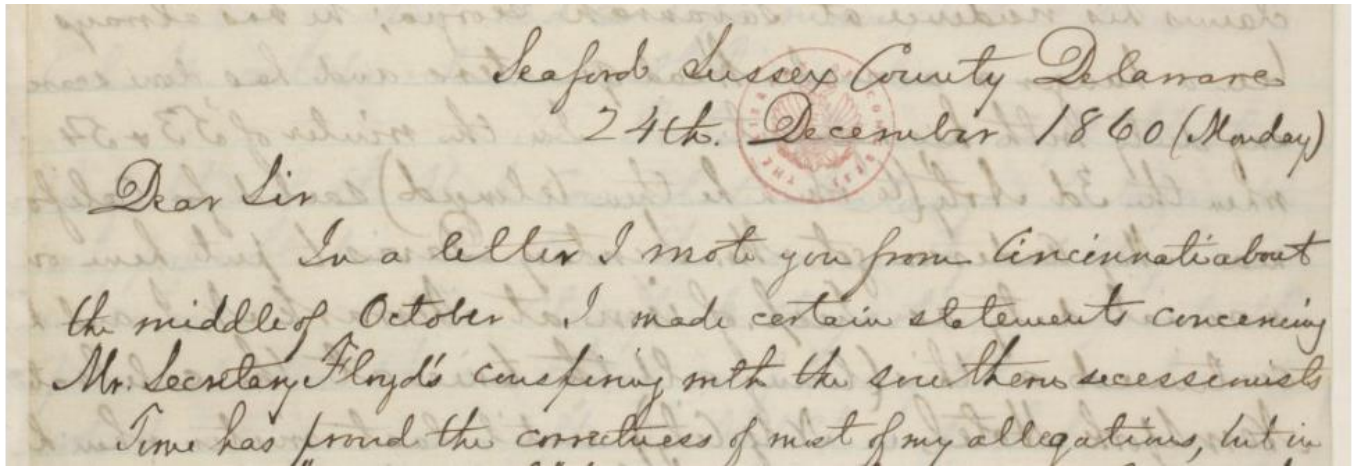 Seaford Sussex County Delaware
24th. December 1860 (Monday)
Dear Sir
In a letter I wrote you from Cincinnati about
the middle of October I made certain statements concerning
Mr. Secretary Floyd's conspiring with the southern secessionists
Time has proved the correctness of most of my allegations, but in